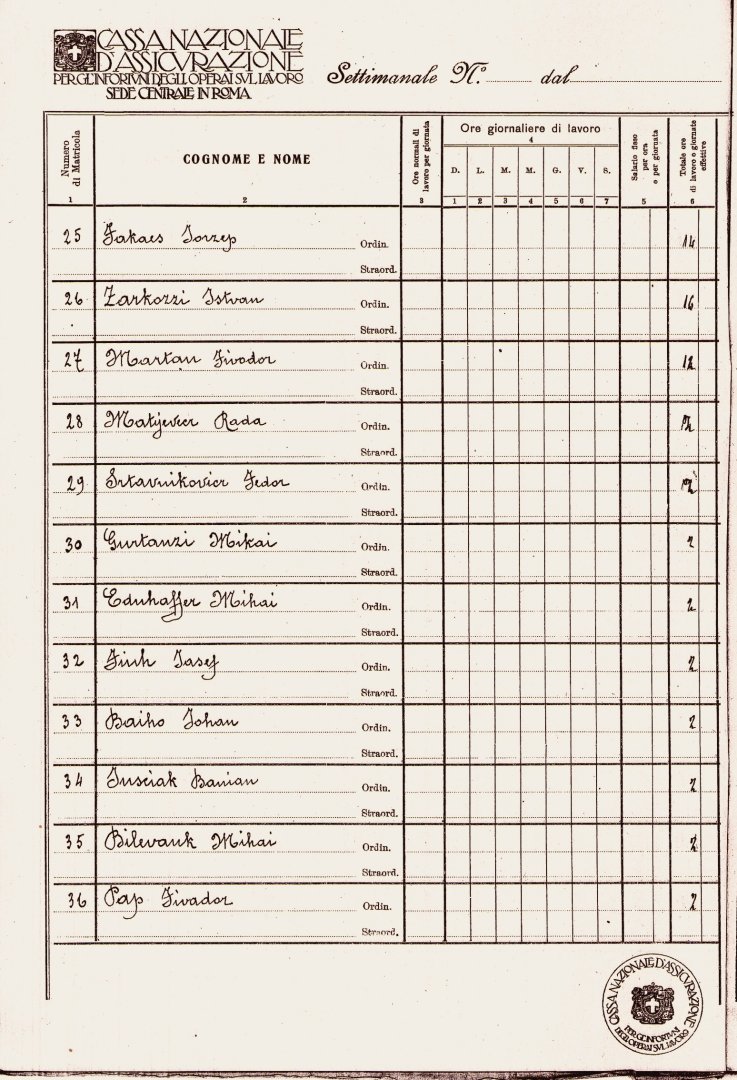 CASSA NAZIONALE
D'ASSICVRAZIONE
PER GL'INFORTVNI DEGLI OPERAI SVL LAVORO
SEDE CENTRALE IN ROMA
Settimanale N.° dal
Numero di Matricola
COGNOME E NOME
Ore normali di lavoro per giornata
Ore giornaliere di lavoro
4
D. L. M. M. G. V. S.
Salario fisso per ora o per giornata
Totale ore di lavoro e giornate effettive
1 2 3 1 2 3 4 5 6 7 5 6
25 Fakacs Iorzep Ordin. 14
Straord.
26 Zarkozzi Istvan Ordin. 16
Straord.
27 Martan Fivodor Ordin. 12
Straord.
28 Matijevier Rada Ordin.
Straord.
29 Srtavnikovier Fedor Ordin.
Straord.
30 Gurtanzi Mikai Ordin. 2
Straord.
31 Eduhaffer Mihai Ordin. 2
Straord.
32 Iasef Ordin. 2
Straord.
33 Baiho Iohan Ordin. 2
Straord.
34 Iusciak Banian Ordin. 2
Straord.
35 Bilevauk Mihai Ordin. 2
Straord.
36 Pap Fivador Ordin. 2
Straord.
CASSA NAZIONALE D'ASSICVRAZIONE
PER GL'INFORTVNI
DEGLI OPERAI SVL LAVORO